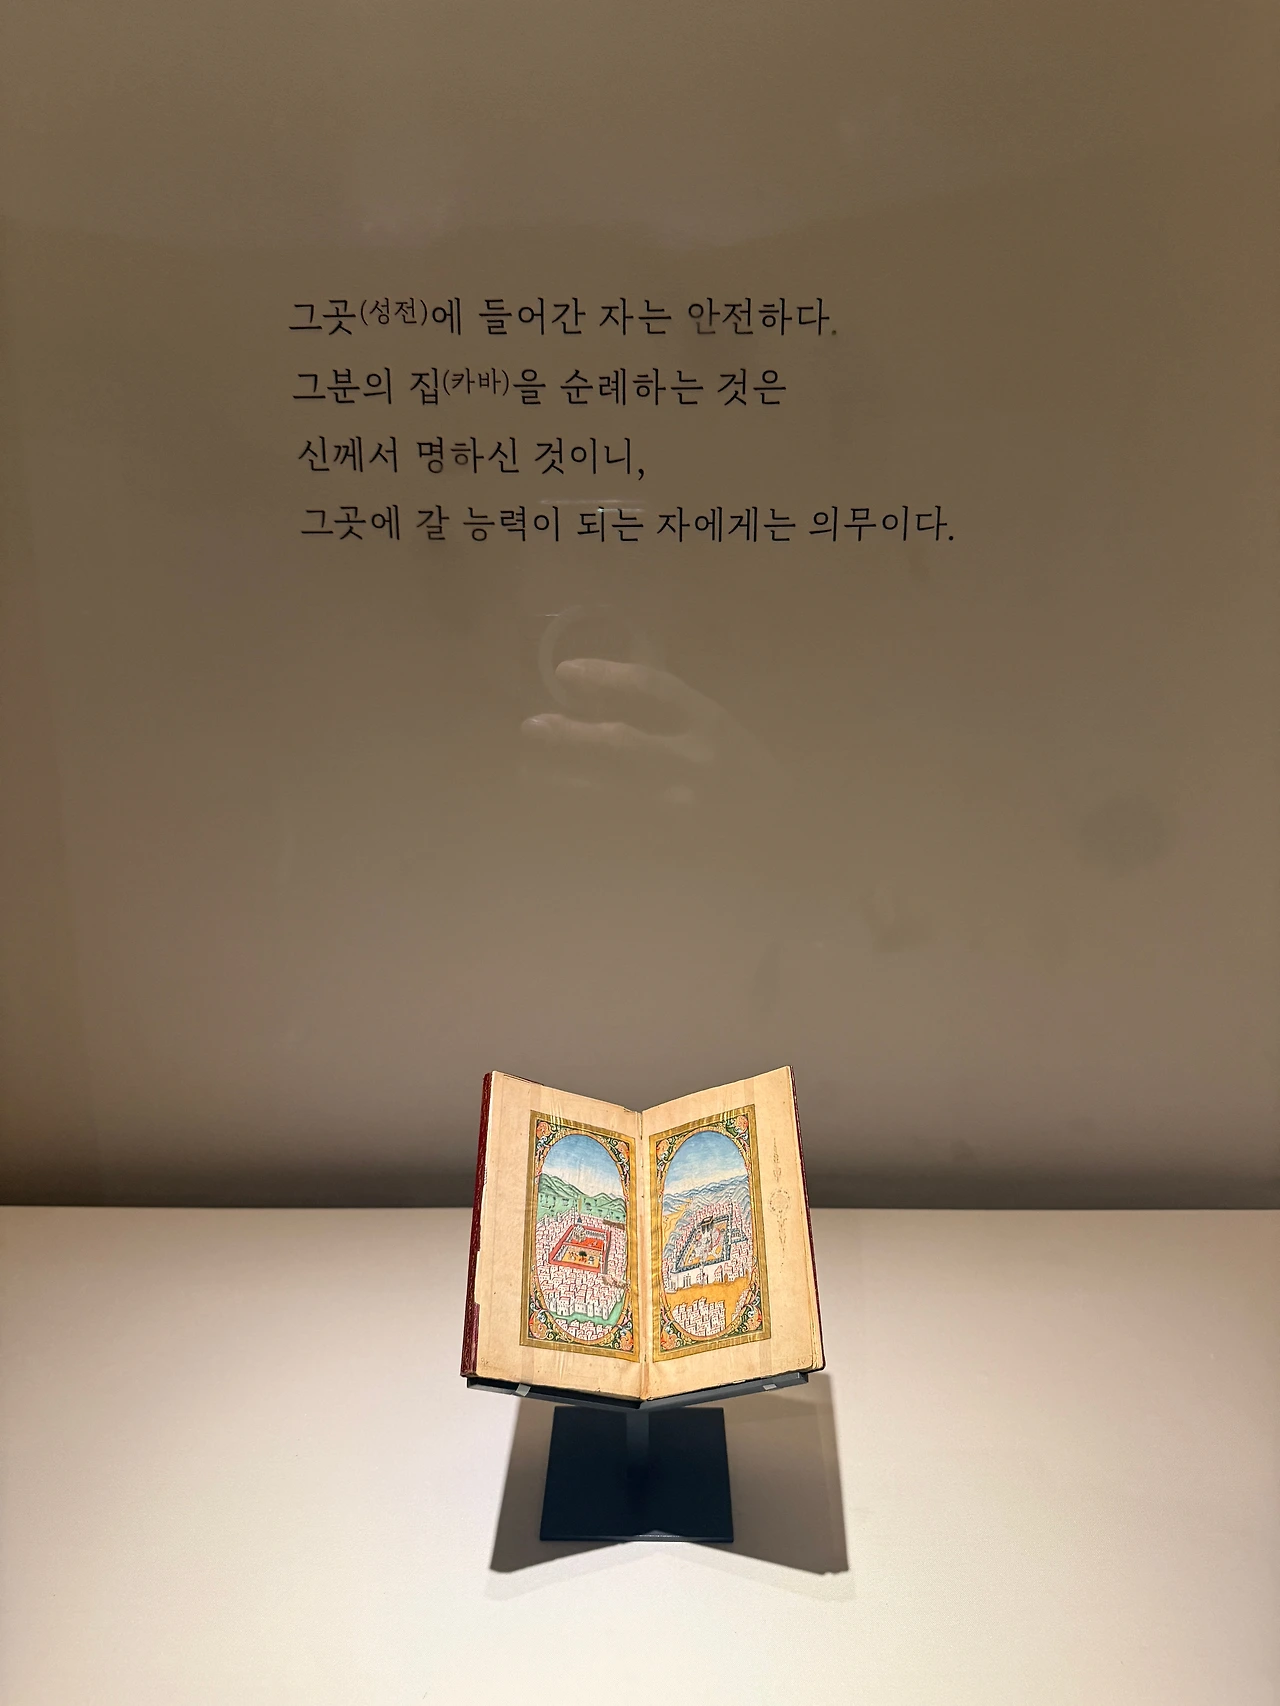 그곳(성전)에 들어간 자는 안전하다.
그분의 집(카바)을 순례하는 것은
신께서 명하신 것이니,
그곳에 갈 능력이 되는 자에게는 의무이다.